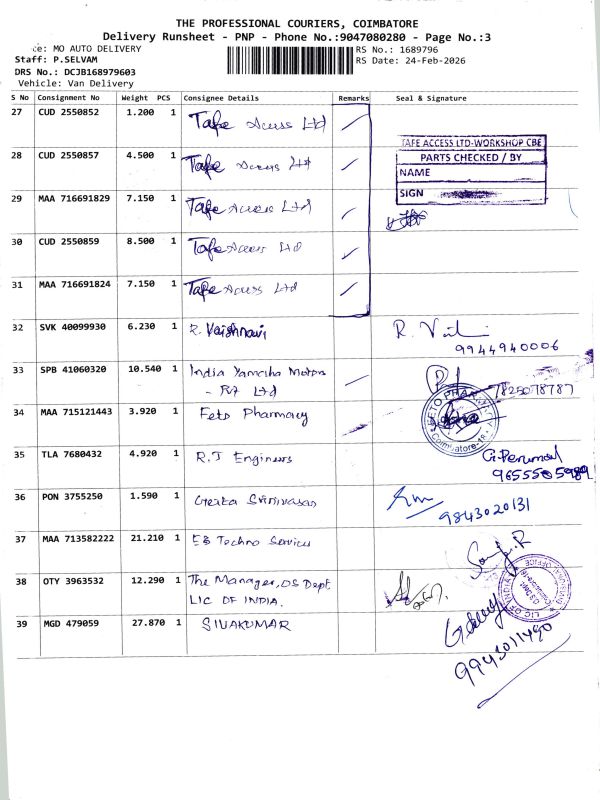 THE PROFESSIONAL COURIERS, COIMBATORE
Delivery Runsheet - PNP - Phone No.:9047080280 - Page No.:3
ce: MO AUTO DELIVERY
RS No.: 1689796
Staff: P.SELVAM
RS Date: 24-Feb-2026
DRS No.: DCJB168979603
Vehicle: Van Delivery
S No Consignment No Weight PCS Consignee Details Remarks Seal & Signature
27 CUD 2550852 1.200 1 Tafe Access Ltd
28 CUD 2550857 4.500 1 Tafe Access Ltd
TAFE ACCESS LTD-WORKSHOP CBE
PARTS CHECKED / BY
NAME
SIGN
29 MAA 716691829 7.150 1 Tafe Access Ltd
30 CUD 2550859 8.500 1 Tafe Access Ltd
31 MAA 716691824 7.150 1 Tafe Access Ltd
32 SVK 40099930 6.230 1 R. Vaishnavi
9944940006
33 SPB 41060320 10.540 1 India Yamaha Motors
- Pvt Ltd
7825078787
34 MAA 715121443 3.920 1 Feto Pharmacy
FETO PHARMACY
Coimbatore-18
35 TLA 7680432 4.920 1 R.J Engineers
G.Perumal
9655505989
36 PON 3755250 1.590 1 Geeta Srinivasan
9843020131
37 MAA 713582222 21.210 1 EB Techno Services
38 OTY 3963532 12.290 1 The Manager, OS Dept
LIC OF INDIA.
39 MGD 479059 27.870 1 SIVAKUMAR
9943011490